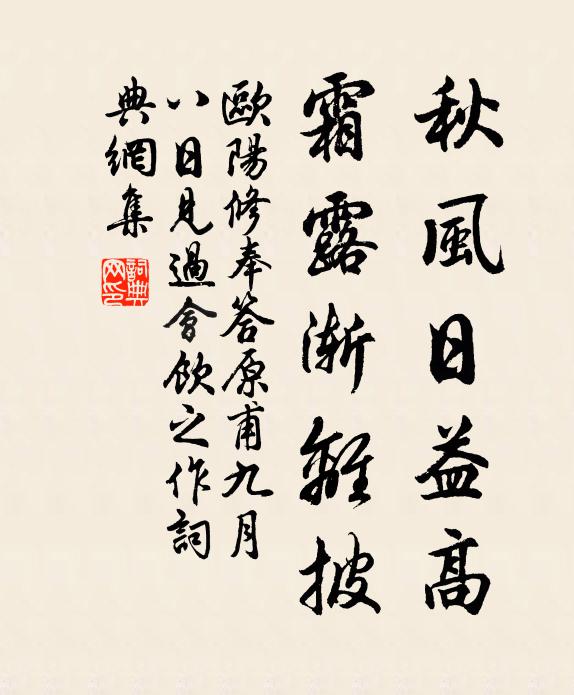 秋風日益高
霜露漸離披
歐陽修奉答原甫九月
八日見過會飲之作詞
典網集
詞典網印